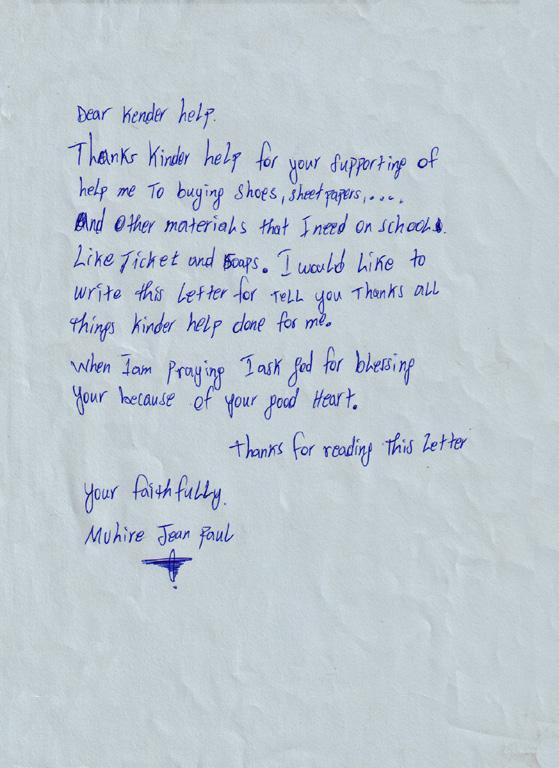 Dear Kender help.
Thanks Kinder help for your supporting of
help me To buying shoes, sheet papers,....
And Other materials that I need on school.
Like Ticket and Soaps. I would Like to
write this Letter for TELL you Thanks all
things kinder help done for me.
When I am praying I ask god for blessing
Your because of your good Heart.
Thanks for reading This Letter
Your faithfully.
Muhire Jean Paul